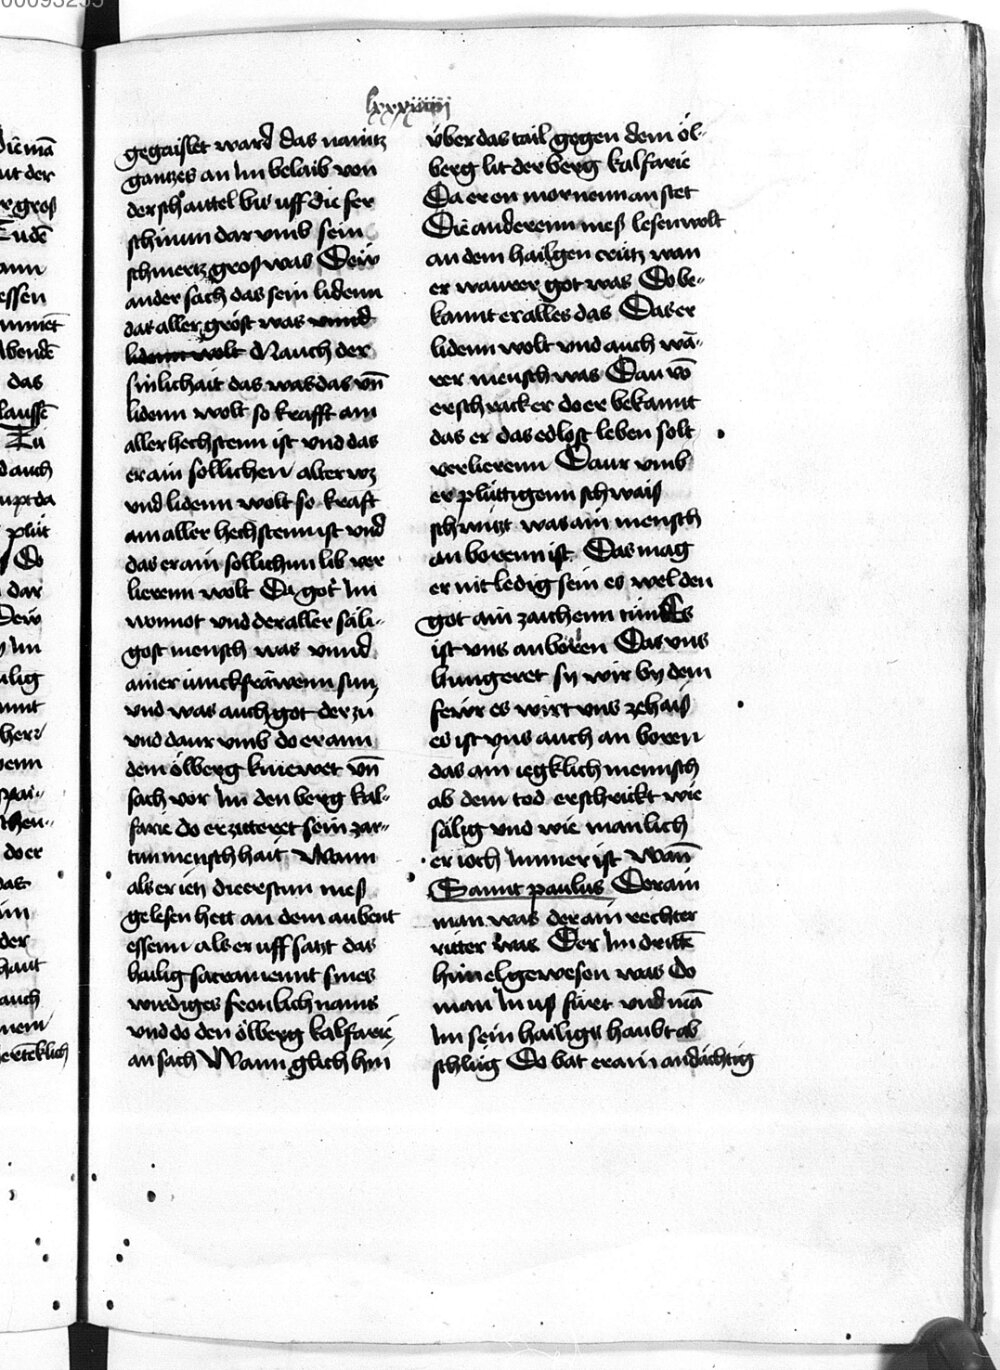 lxxxiiiii
gegaislet ward das nauntz
gantzes an im belaib von
der schaittel bis uff die fer
schinun dar vmb sein
schmertz gros was Dew
ander sach das sein lidenn
das aller gröst was vnnd
lidenn wolt Nauch der
sinlichait das was das vn̄
lidenn wolt so krafft am
aller hechstenn ist vnd das
er ain sollichen alter wz
vnd lidenn wolt so kraft
am aller hechstenn ist vnd
das er ain sollichun lib ver
lierenn wolt Da got im
wonnot vnd der aller säli-
gost mensch was vnnd
ainer iunckfräwenn sun
vnd was auch got der zü
vnd daur vmb do er ann
dem ölberg kniewet vn̄
sach vor im den berg kal-
farie do erzitteret sein zar-
tun menschhait Wann
als er ietz die erstun mess
gelesen hett an dem aubent
essenn als er uff satzt das
hailig sacrament sines
wirdiges fronlichnams
vnd do den ölberg kalfarie
an sach Wann glich hin
über das tail gegen dem öl-
berg lit der berg kalfarie
Da er on mornennan stet
Die anderenn mess lesen wolt
an dem hailgen crütz wan
er wauer got was Do be-
kannt er alles das Das er
lidenn wolt vnd auch wā-
rer mensch was Dau vō
erschrack er do er bekannt
das er das edlost leben solt
verlierenn Daur vmb
er plüttigenn schwais
schwitzt was ain mensch
an borenn ist Das mag
er nit ledig sein es wel den
got ain zaichenn tün Es
ist vns anboren Das vns
hungeret sy wir by dem
fewr es wirt vns ze hais
es ist vns auch an boren
das ain iegklich mennsch
ab dem tod erschrickt wie
sälig vnd wie manlich
er ioch immer ist Wan̄
Sannt paulus Der ain
man was der ain rechter
ritter was Der im drittē
himelgewesen was Do
man in us füret vnd mā
im sein hailigs haubt ab
schlüg Do bat er ain andächtig